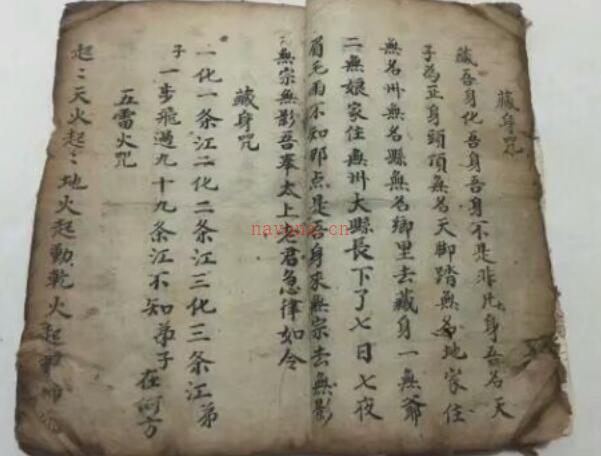 藏身咒
藏吾身化吾身吾身不是非凡身吾名天
子為正身頭頂無名天脚踏無名地家住
無名州無名縣無名鄉里去藏身一無爺
二無娘家住無州大縣長下了七日七夜
眉毛雨不知那点是吾身來無宗去無影
無宗無影吾奉太上老君急律如令
藏身咒
一化一条江二化二条江三化三条江弟
子一步飛過九十九条江不知弟子在何方
五雷火咒
起〻天火起〻地火起動乾火起
nayona.cn